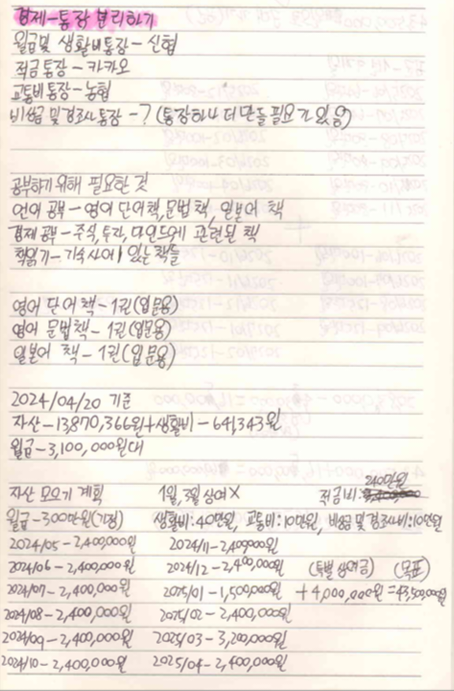 경제-통장 분리하기
월급및 생활비통장-신협
적금통장-카카오
교통비통장-농협
비상금 및 경조사통장-? (통장하나 더 만들 필요가 있음)
공부하기 위해 필요한 것
언어 공부-영어 단어책,문법책, 일본어 책
경제 공부-주식,투자,마인드에 관련된 책
책읽기-기숙사에 있는 책들
영어 단어 책-1권(입문용)
영어 문법책-1권(입문용)
일본어 책-1권(입문용)
2024/04/20 기준
자산-13,870,366원+생활비-641,343원
월급-3,100,000원대
240만원
자산 모으기 계획 1월,3월 상여X 적금비:
월급-300만원(가정) 생활비:40만원, 교통비:10만원, 비상금 및 경조사비:10만원
2024/05-2,400,000원 2024/11-2,400,000원
2024/06-2,400,000원 2024/12-2,400,000원 (특별 상여금) (목표)
2024/07-2,400,000원 2025/01-1,500,000원 +4,000,000원=43,500,000원
2024/08-2,400,000원 2025/02-2,400,000원
2024/09-2,400,000원 2025/03-3,200,000원
2024/10-2,400,000원 2025/04-2,400,000원